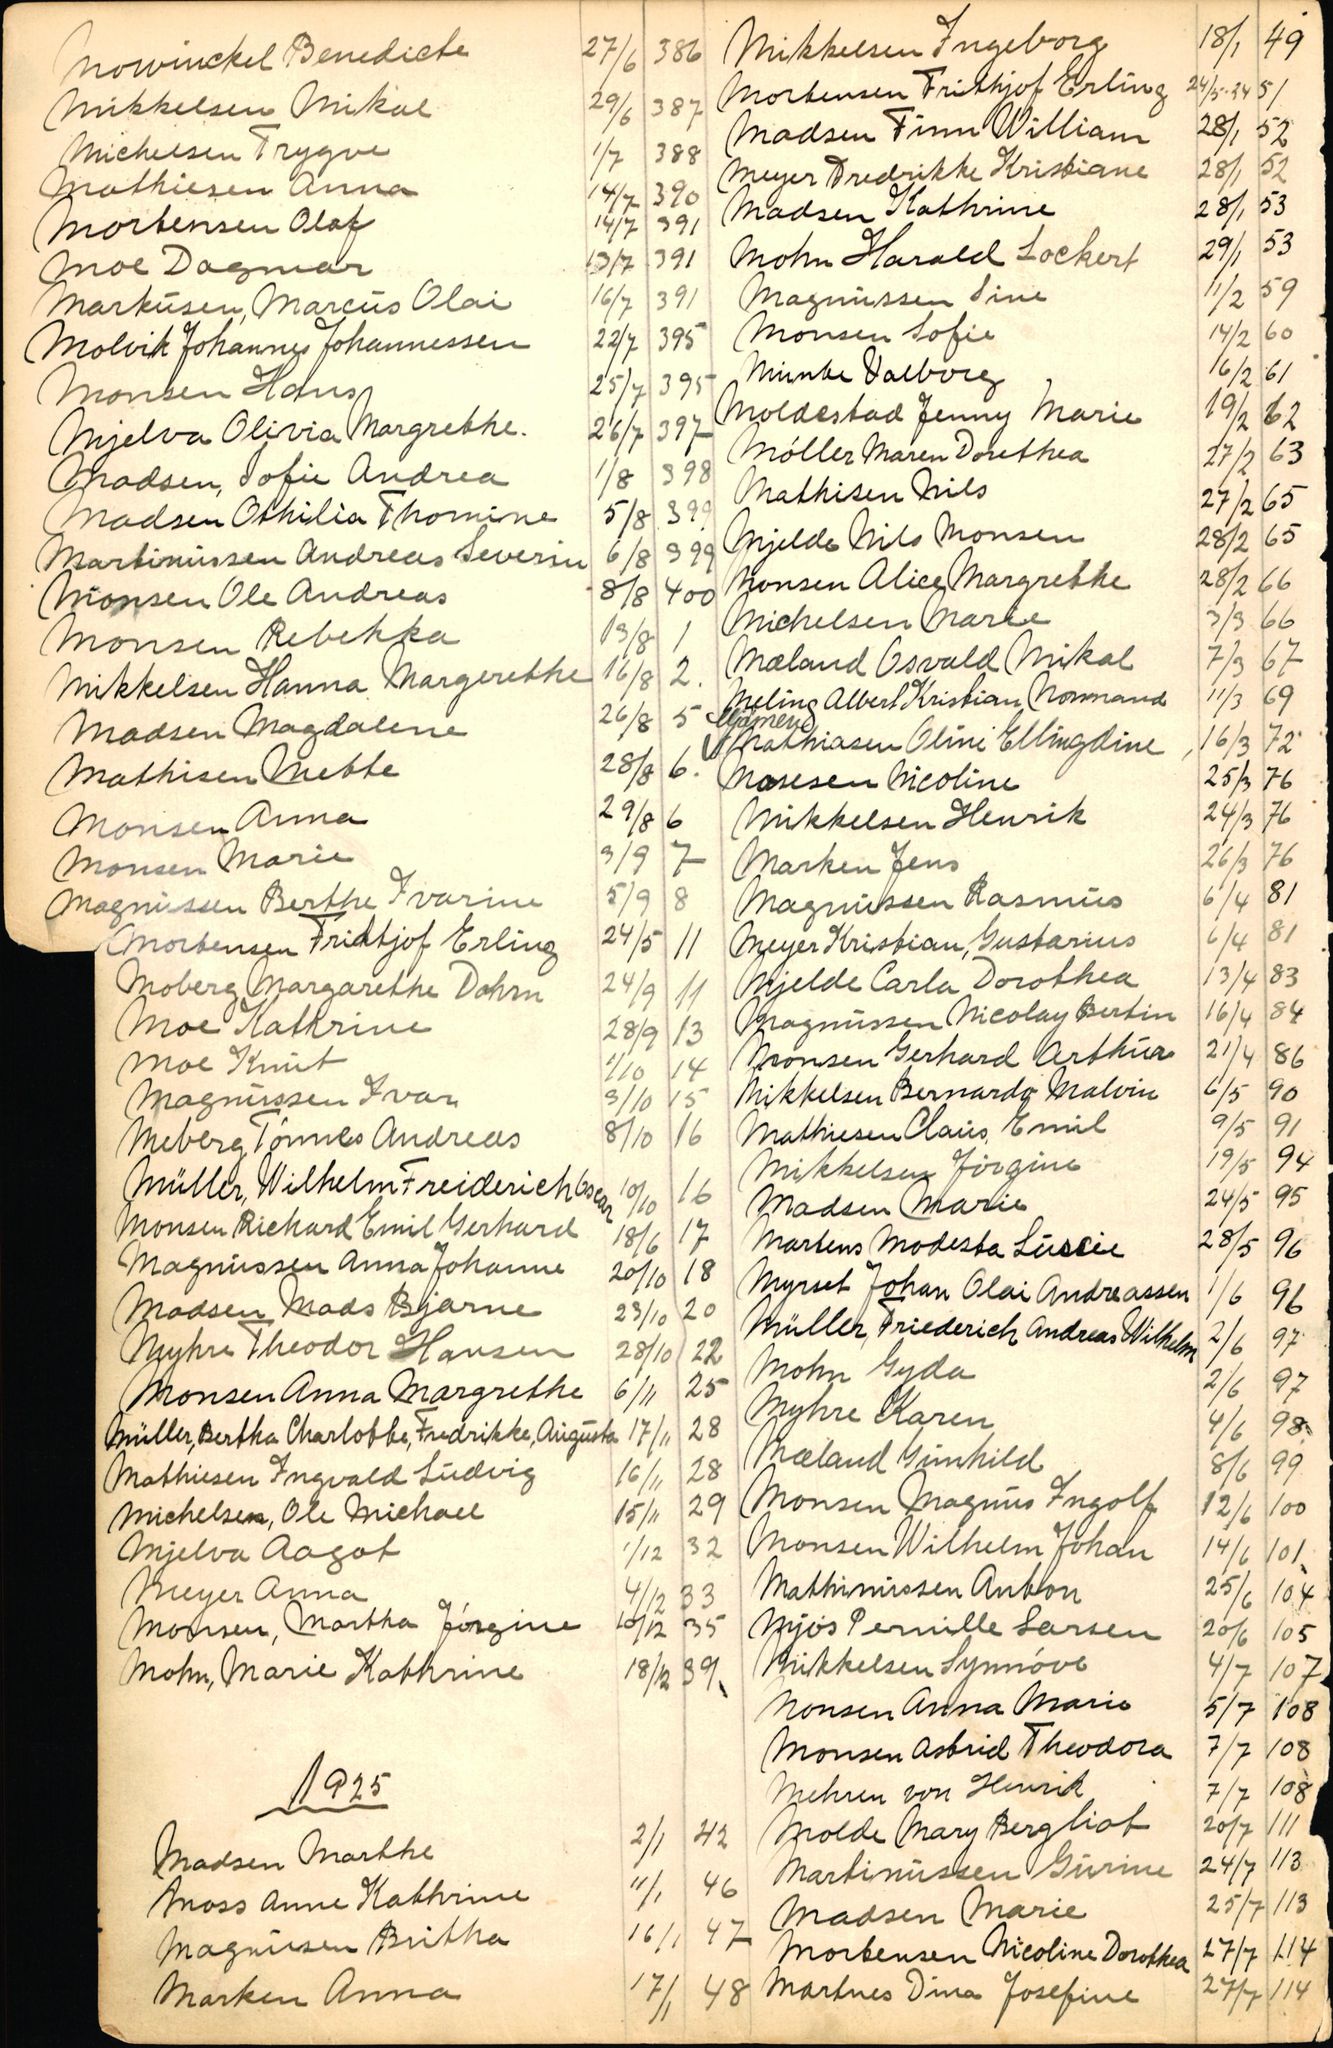 Mowinckel Benedicte 27/6 386
Mikkelsen Mikal 29/6 387
Michelsen Trygve 1/7 388
Mathiesen Anna 14/7 390
Mortensen Olaf 14/7 391
Moe Dagmar 13/7 391
Markusen, Marcus Olai 16/7 391
Molvik Johannes Johannessen 22/7 395
Monsen Hans 25/7 395
Mjelva Olivia Margrethe. 26/7 397
Madsen, Sofie Andrea 1/8 398
Madsen Othilia Thomine 5/8 399
Martinussen Andreas Severin 6/8 399
Monsen Ole Andreas 8/8 400
Monsen Rebekka 13/8 1
Mikkelsen Hanna Margerethe 16/8 2.
Madsen Magdalene 26/8 5
Mathisen Mette 28/8 6.
Monsen Anna 29/8 6
Monsen Marie 3/9 7
Magnussen Berthe Ivarine 5/9 8
Mortensen Fridtjof Erling 24/5 11
Moberg Margarethe Dohrn 24/9 11
Moe Kathrine 28/9 13
Moe Knut 1/10 14
Magnussen Ivar 3/10 15
Meberg Tönnes Andreas 8/10 16
Müller, Wilhelm Freiderich Oscar 10/10 16
Monsen Richard Emil Gerhard 18/6 17
Magnussen Anna Johanne 20/10 18
Madsen Mads Bjarne 23/10 20
Myhre Theodor Hansen 28/10 22
Monsen Anna Margrethe 6/11 25
Müller, Bertha Charlotte, Fredrikke, Augusta 17/11 28
Mathiesen Ingvald Ludvig 16/11 28
Michelsen, Ole Michael 15/11 29
Mjelva Aagot 1/12 32
Meyer Anna 4/12 33
Monsen, Martha Jörgine 10/12 35
Mohn, Marie Kathrine 18/12 39
1925
Madsen Marthe 2/1 42
Moss Anne Kathrine 11/1 46
Magnusen Britha 16/1 47
Marken Anna 17/1 48
Mikkelsen Ingeborg 18/1 49
Mortensen Frithjof Erling 24/5-24 51
Madsen Finn William 28/1 52
Meyer Fredrikke Kristiane 28/1 52
Madsen Kathrine 28/1 53
Mohn Harald Lockert 29/1 53
Magnussen Sine 11/2 59
Monsen Sofie 14/2 60
Munte Valborg 16/2 61
Moldestad Jenny Marie 19/2 62
Möller Maren Dorethea 27/2 63
Mathisen Nils 27/2 65
Mjelde Nils Monsen 28/2 65
Monsen Alice Margrethe 28/2 66
Michelsen Marie 3/3 66
Mæland Osvald Mikal 7/3 67
Meling Albert Kristian Normand 11/3 69
Mathiasen Oline Ellingdine 16/3 72
Mosesen Nicoline 25/3 76
Mikkelsen Henrik 24/3 76
Marken Jens 26/3 76
Magnussen Rasmus 6/4 81
Meyer Kristian, Gustavius 6/4 81
Mjelde Carla Dorothea 13/4 83
Magnussen Nicolay Bertin 16/4 84
Monsen Gerhard Arthur 21/4 86
Mikkelsen Bernardo Malvin 6/5 90
Mathiesen Claus, Emil 9/5 91
Mikkelsen Jörgine 19/5 94
Madsen Marie 24/5 95
Martens Modesta Luscie 28/5 96
Myrset Johan Olai Andreassen 1/6 96
Müller, Friederich Andreas Wilhelm 2/6 97
Mohn Gyda 2/6 97
Myhre Karen 4/6 98
Mæland Gunhild 8/6 99
Monsen Magnus Ingolf 12/6 100
Monsen Wilhelm Johan 14/6 101
Mathinussen Anton 25/6 104
Mjös Pernille Larsen 20/6 105
Mikkelsen Synnöve 4/7 107
Monsen Anna Marie 5/7 108
Monsen Astrid Theodora 7/7 108
Mehren von Henrik 7/7 108
Molde Mary Bergliot 20/7 111
Martinussen Gurine 24/7 113
Madsen Marie 25/7 113
Mortensen Nicoline Dorothea 27/7 114
Martnes Dina Josefine 27/7 114